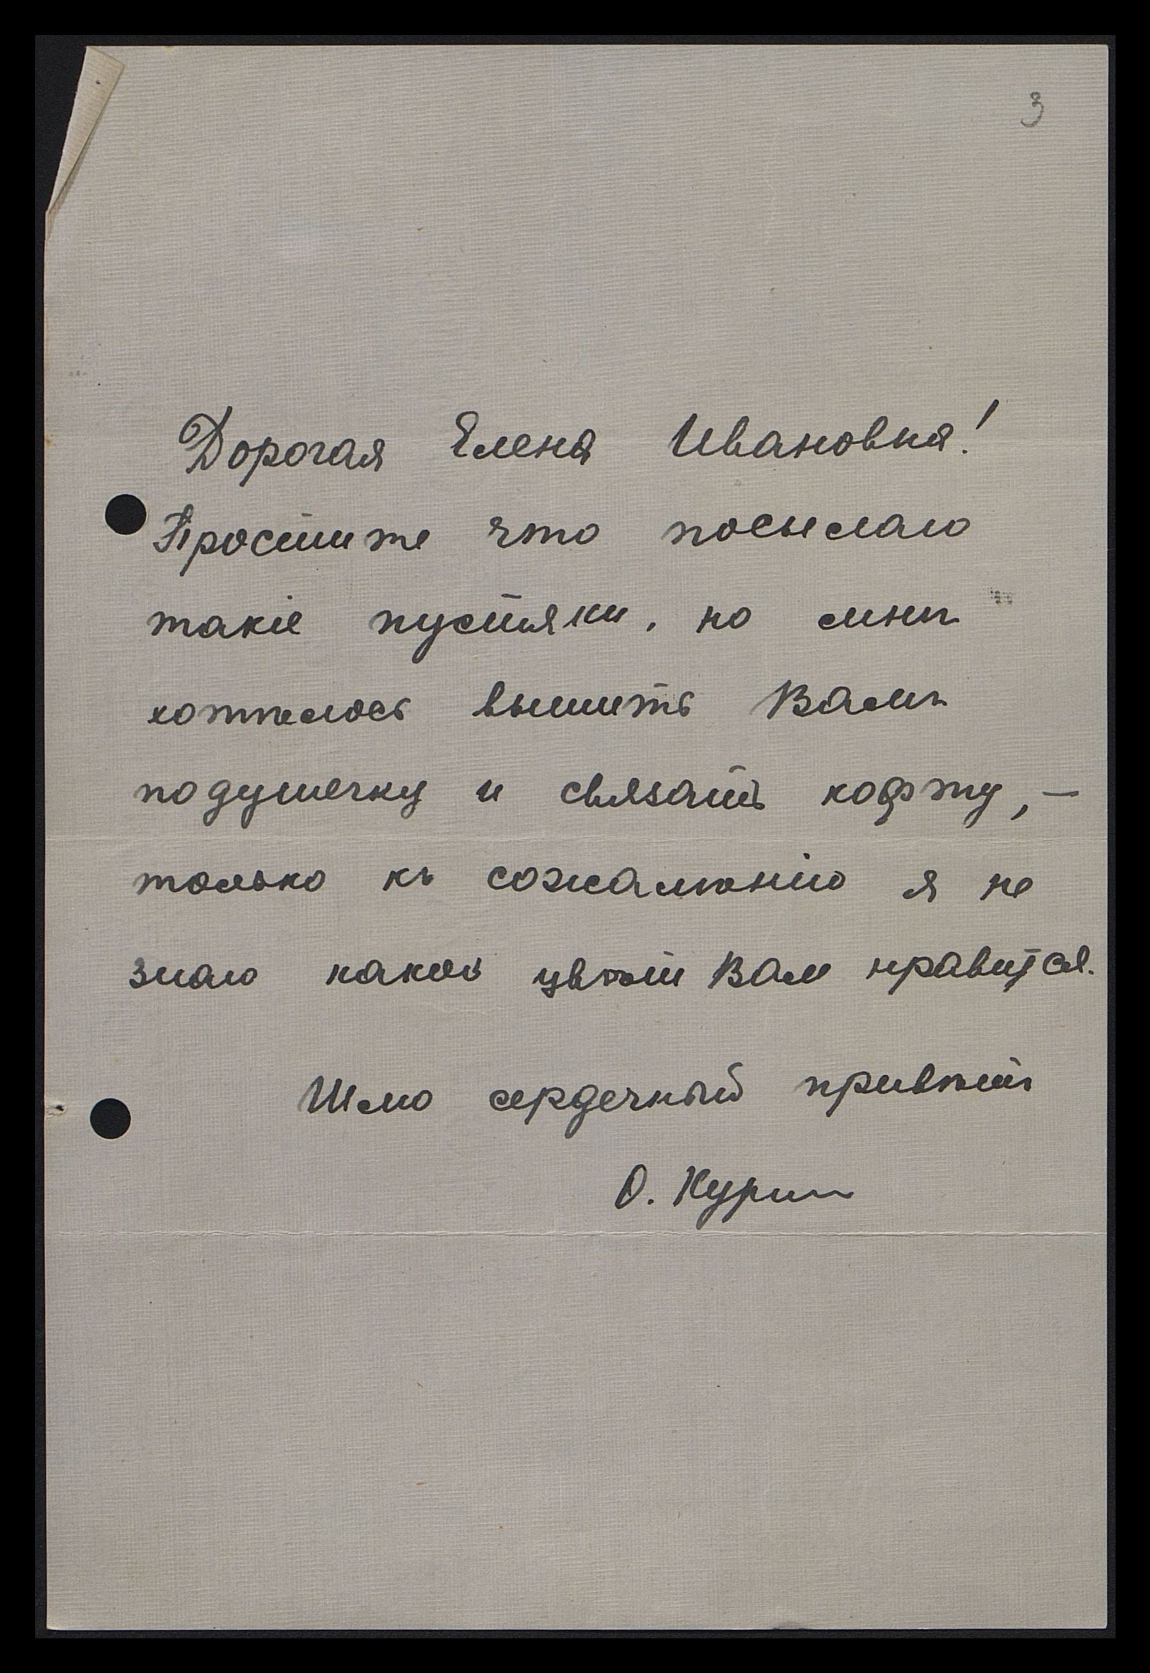 3
Дорогая Елена Ивановна!
Простите что посылаю
такіе пустяки, но мнѣ
хотѣлось вышить Вамъ
подушечку и связать кофту, —
только къ сожалѣнію я не
знаю какой цвѣтъ Вам нравится.
Шлю сердечный привѣтъ
О.